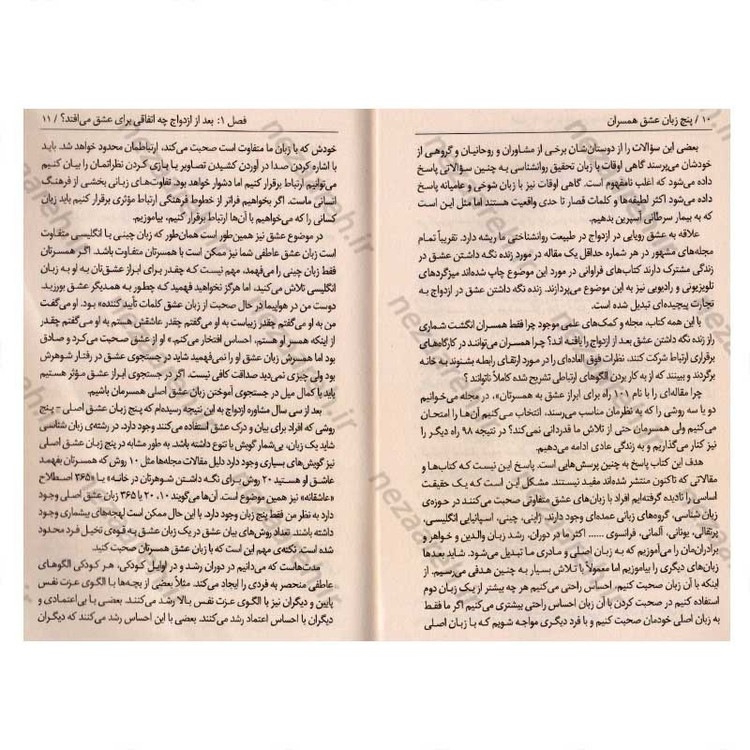 ۱۰ / پنج زبان عشق همسران
بعضی این سؤالات را از دوستان‌شان برخی از مشاوران و روحانیان و گروهی از
خودشان می‌پرسند گاهی اوقات با زبان تحقیق روانشناسی به چنین سؤالاتی پاسخ
داده می‌شود که اغلب نامفهوم است. گاهی اوقات نیز با زبان شوخی و عامیانه پاسخ
داده می‌شود اکثر لطیفه‌ها و کلمات قصار تا حدی واقعیت هستند اما مثل این است
که به بیمار سرطانی آسپرین بدهیم.
علاقه به عشق رویایی در ازدواج در طبیعت روانشناختی ما ریشه دارد. تقریباً تمام
مجله‌های مشهور در هر شماره حداقل یک مقاله در مورد زنده نگه داشتن عشق در
زندگی مشترک دارند کتاب‌های فراوانی در مورد این موضوع چاپ شده‌اند میزگردهای
تلویزیونی و رادیویی نیز به این موضوع می‌پردازند. زنده نگه داشتن عشق در ازدواج به
تجارت پیچیده‌ای تبدیل شده است.
با این همه کتاب، مجله و کمک‌های علمی موجود چرا فقط همسران انگشت شماری
راز زنده نگاه داشتن عشق بعد از ازدواج را یافته اند؟ چرا همسران می‌توانند در کارگاه‌های
برقراری ارتباط شرکت کنند، نظرات فوق العاده‌ای را در مورد ارتقای رابطه بشنوند به خانه
برگردند و ببینند که از به کار بردن الگوهای ارتباطی تشریح شده کاملاً ناتوانند؟
چرا مقاله‌ای را با نام «۱۰۱ راه برای ابراز عشق به همسرتان»، در مجله می‌خوانیم
دو یا سه روشی را که به نظرمان مناسب می‌رسند، انتخاب می‌کنیم آن‌ها را امتحان
می‌کنیم ولی همسرمان حتی از تلاش ما قدردانی نمی‌کند؟ در نتیجه ۹۸ راه دیگر را
نیز کنار می‌گذاریم و به زندگی عادی ادامه می‌دهیم.
هدف این کتاب پاسخ به چنین پرسش‌هایی است. پاسخ این نیست که کتاب‌ها و
مقالاتی که تاکنون منتشر شده‌اند مفید نیستند. مشکل این است که یک حقیقت
اساسی را نادیده گرفته‌ایم افراد با زبان‌های عشق متفاوتی صحبت می‌کنند در حوزه‌ی
زبان شناسی، گروه‌های زبانی عمده‌ای وجود دارند: ژاپنی، چینی، اسپانیایی انگلیسی،
پرتقالی، یونانی، آلمانی، فرانسوی ...... اکثر ما در دوران، رشد زبان والدین و خواهر و
برادران‌مان را می‌آموزیم که به زبان اصلی و مادری ما تبدیل می‌شود. شاید بعدها
زبان‌های دیگری را بیاموزیم اما معمولاً با تلاش بسیار به چنین هدفی می‌رسیم. از
اینکه با آن زبان صحبت کنیم، احساس راحتی می‌کنیم هر چه بیشتر از یک زبان دوم
استفاده کنیم در صحبت کردن با آن زبان احساس راحتی بیشتری می‌کنیم اگر ما فقط
به زبان اصلی خودمان صحبت کنیم و با فرد دیگری مواجه شویم که با زبان اصلی
فصل ۱: بعد از ازدواج چه اتفاقی برای عشق می‌افتد؟ / ۱۱
خودش که با زبان ما متفاوت است صحبت می‌کند، ارتباطمان محدود خواهد شد. باید
با اشاره کردن صدا در آوردن کشیدن تصاویر یا بازی کردن نظراتمان را بیان کنیم
می‌توانیم ارتباط برقرار کنیم اما دشوار خواهد بود. تفاوت‌های زبانی بخشی از فرهنگ
انسانی ماست. اگر بخواهیم فراتر از خطوط فرهنگی ارتباط مؤثری برقرار کنیم باید زبان
کسانی را که می‌خواهیم با آن‌ها ارتباط برقرار کنیم، بیاموزیم.
در موضوع عشق نیز همین‌طور است همان‌طور که زبان چینی با انگلیسی متفاوت
است زبان عشق عاطفی شما نیز ممکن است با همسرتان متفاوت باشد. اگر همسرتان
فقط زبان چینی را می‌فهمد، مهم نیست که چقدر برای ابراز عشق‌تان به او به زبان
انگلیسی تلاش می‌کنید، اما هرگز نخواهید فهمید که چطور به همدیگر عشق بورزید.
دوست من در هواپیما در حال صحبت از زبان عشق کلمات تأیید کننده» بود. او می‌گفت
من به او می‌گفتم چقدر زیباست به او می‌گفتم چقدر عاشقش هستم به او می‌گفتم چقدر
از اینکه همسر او هستم، احساس افتخار می‌کنم.» او از عشق صحبت می‌کرد و صادق
بود اما همسرش زبان عشق او را نمی‌فهمید شاید در جستجوی عشق در رفتار شوهرش
بود ولی چیزی نمی‌دید صداقت کافی نیست. اگر در جستجوی ابراز عشق مؤثر هستیم
باید با کمال میل در جستجوی آموختن زبان عشق اصلی همسرمان باشیم.
بعد از سی سال مشاوره ازدواج به این نتیجه رسیده‌ام که پنج زبان عشق اصلی - پنج
روشی که افراد برای بیان و درک عشق استفاده می‌کنند وجود دارد. در رشته‌ی زبان شناسی
شاید یک زبان، بی‌شمار گویش با تنوع داشته باشد. به طور مشابه در پنج زبان عشق اصلی
نیز گویش‌های بسیاری وجود دارد دلیل مقالات مجله‌ها مثل ۱۰ روش که همسرتان بفهمد
عاشق او هستید ۲۰ روش برای نگه داشتن شوهرتان در خانه» یا «۳۶۵ اصطلاح
«عاشقانه» نیز همین موضوع است. آن‌ها می‌گویند ۱۰، ۲۰ یا ۳۶۵ زبان عشق اصلی وجود
دارد به نظر من فقط پنج زبان وجود دارد. با این حال ممکن است لهجه‌های بیشماری وجود
داشته باشند. تعداد روش‌های بیان عشق در یک زبان عشق به قوه‌ی تخیل فرد محدود
شده است. نکته‌ی مهم این است که با زبان عشق همسرتان صحبت کنید.
مدت‌هاست که می‌دانیم در دوران رشد و در اوایل کودکی، هر کودکی الگوهای
عاطفی منحصر به فردی را ایجاد می‌کند. مثلاً بعضی از بچه‌ها با الگوی عزت نفس
پایین و دیگران نیز با الگوی عزت نفس بالا رشد می‌کنند. بعضی با بی‌اعتمادی و
دیگران با احساس اعتماد رشد می‌کنند. بعضی با این احساس رشد می‌کنند که دیگران